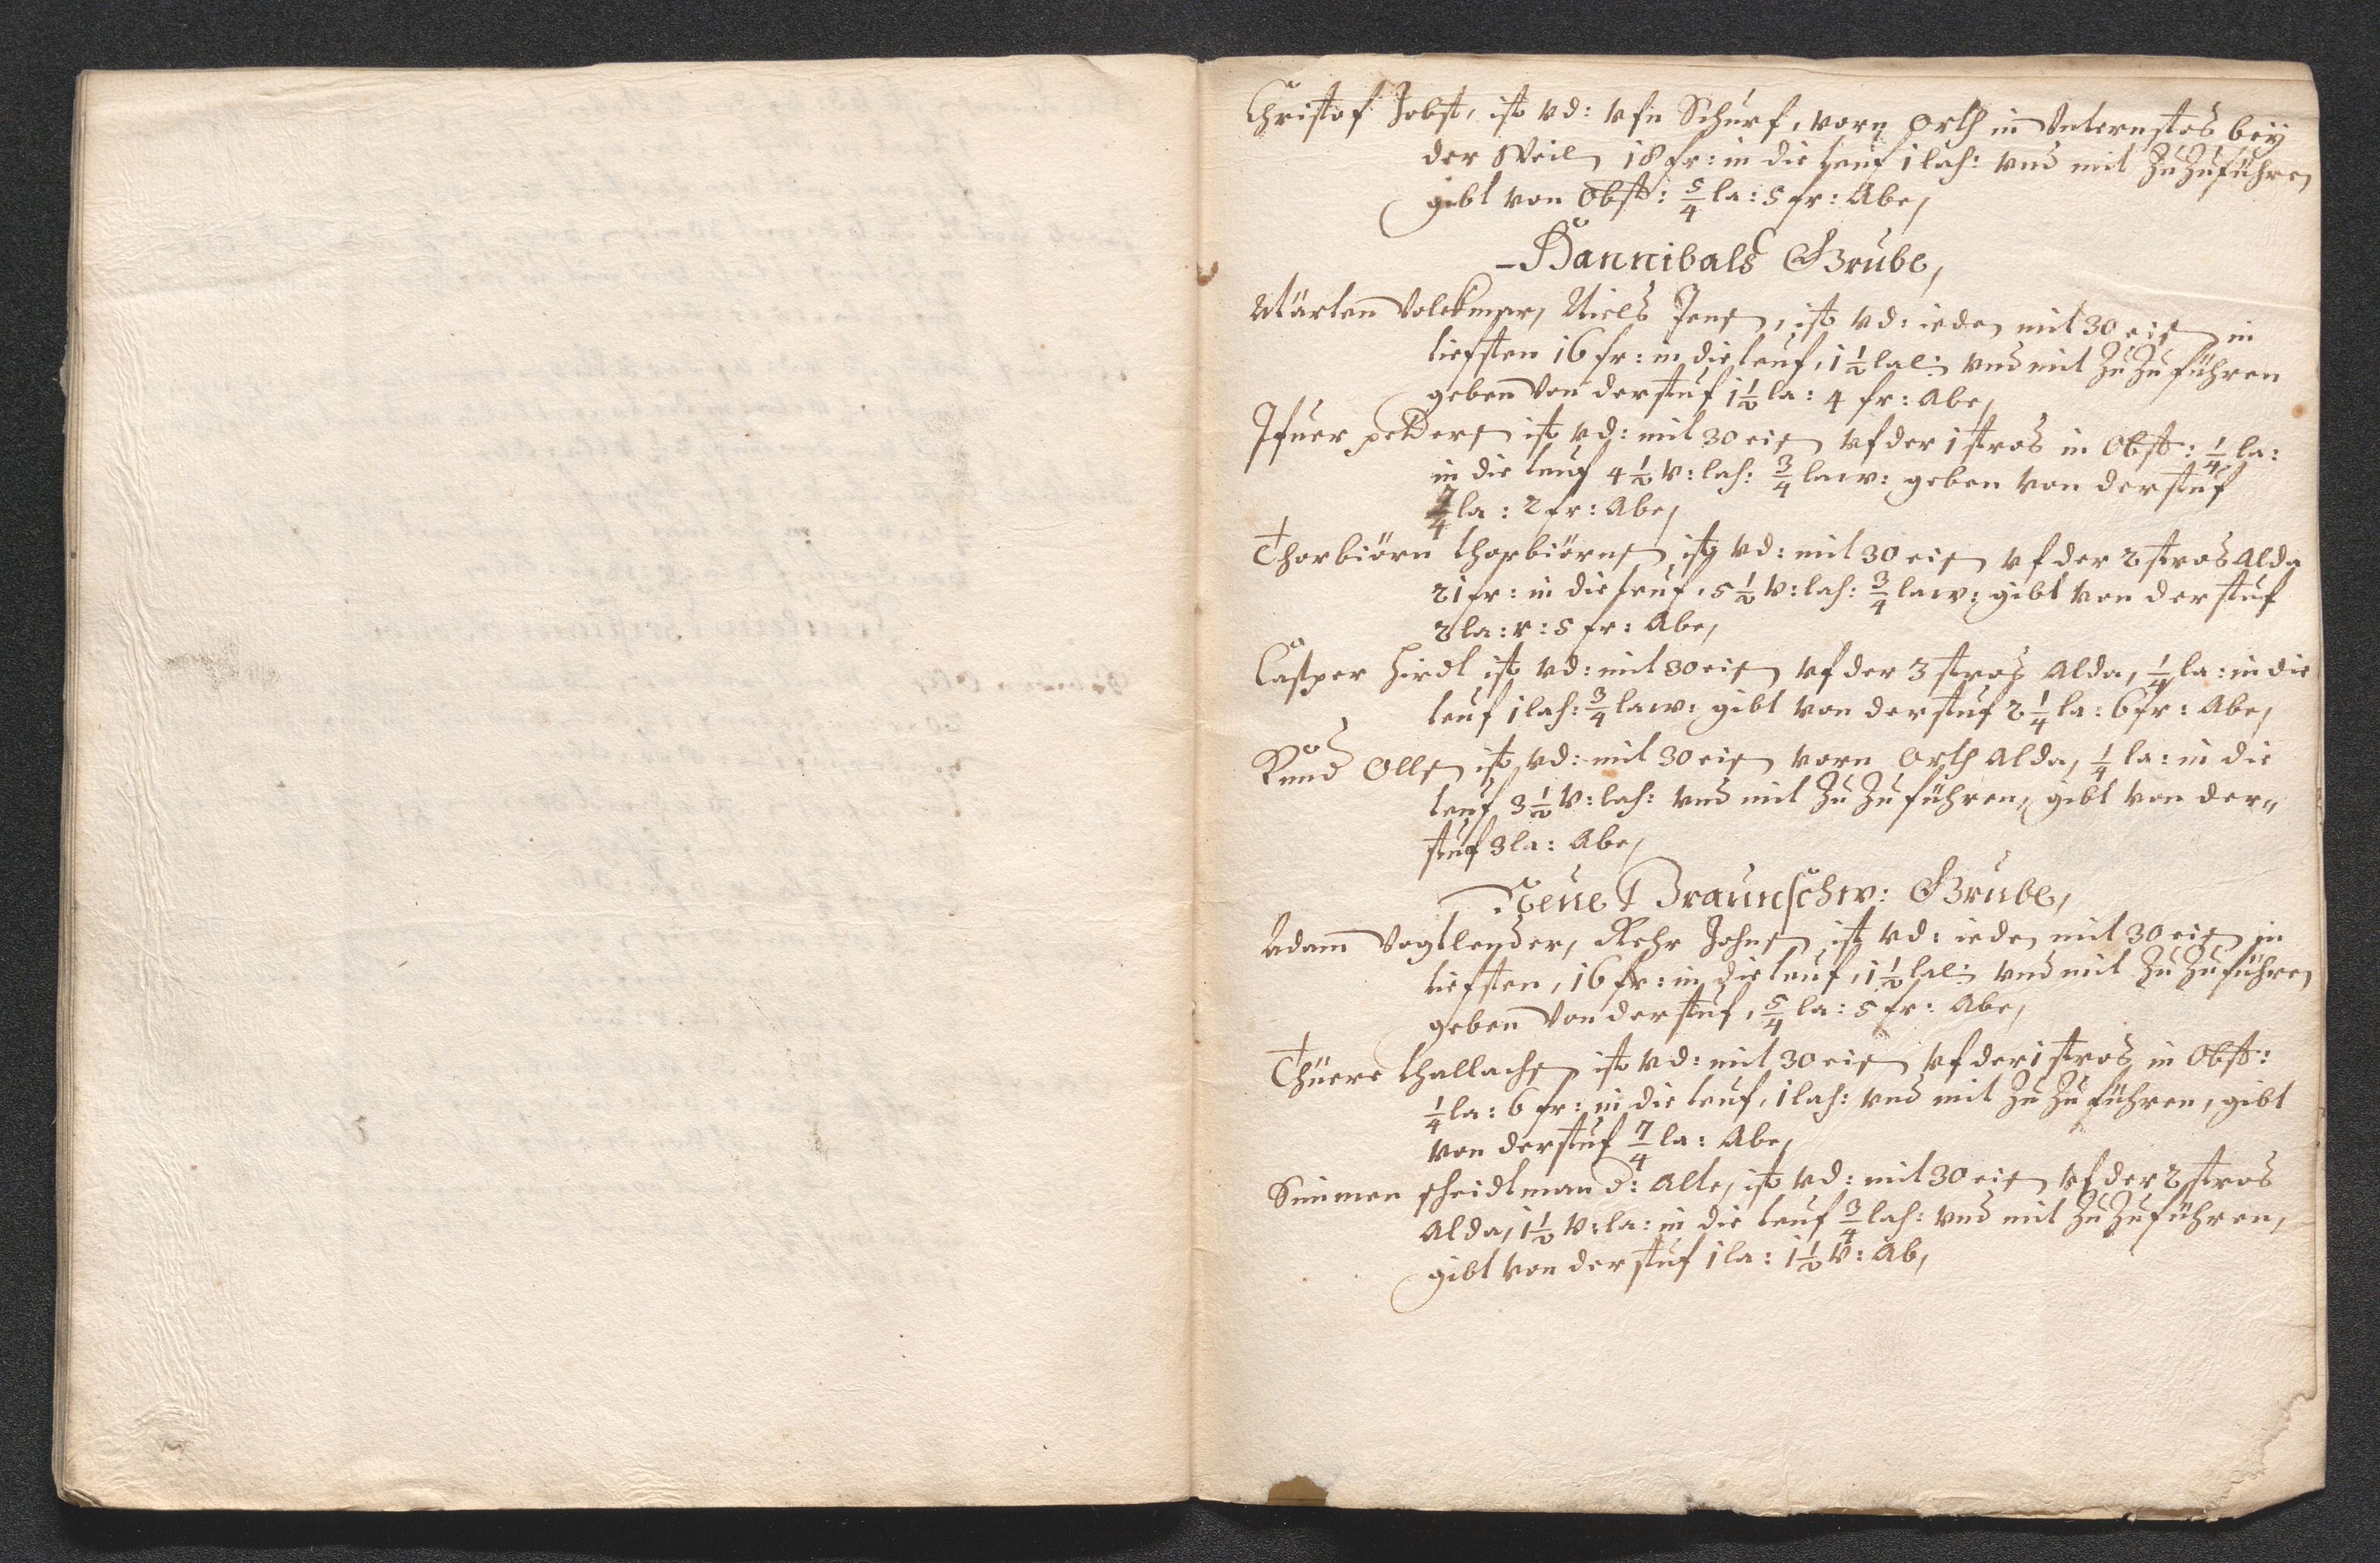 Christof Jobst, ist vd: vfn Schurf, vorn Orth in Unternstos bey
der Weil 18 fr: in die teuf 1 lach: vnd mit Zu Zuführen
gibt von Obst: 5/4 la: 5 fr: Abe,
Hannibals Grube,
Märten Volckmar, Niels Jens, ist vd: ieder mit 30 eis in
tiefsten 16 fr: in die teuf, 1 1/2 lac: vnd mit Zu Zuführen
geben von der stuf 1 1/2 la: 4 fr: Abe,
Ifuer peders ist vd: mit 30 eis vf der 1 stros in Obst: 1/4 la:
in die teuf 4 1/2 v: lach: 3/4 law: geben von der stuf
7/4 la: 2 fr: Abe,
Thorbiörn thorbiörns ist vd: mit 30 eis vf der 2 stros Alda
21 fr: in die teuf, 5 1/2 v: lach: 3/4 law: gibt von der stuf
2 la: v: 5 fr: Abe,
Casper Hirdt ist vd: mit 30 eis vf der 3 stros Alda, 1/4 la: in die
teuf 1 lach: 3/4 law: gibt von der stuf 2 1/4 la: 6 fr: Abe,
Knud Olls ist vd: mit 30 eis vorn Orth Alda, 1/4 la: in die
teuf 3 1/2 v: lach: vnd mit Zu Zuführen, gibt von der„
stuf 3 la: Abe,
Neue Braunschw: Grube,
Adam Vogtlender, Rehr Johns ist vd: ieder mit 30 eis in
tiefsten, 16 fr: in die teuf, 1 1/2 lac: vnd mit Zu Zuführen
geben von der stuf, 5/4 la: 5 fr: Abe,
Thüere thallachs ist vd: mit 30 eis vf der 1 stros in Obst:
1/4 la: 6 fr: in die teuf, 1 lach: vnd mit Zu Zuführen, gibt
von der stuf 7/4 la: Abe,
Simmen scheidtman d: Alte, ist vd: mit 30 eis vf der 2 stros
Alda, 1 1/2 v: la: in die teuf 3/4 lach: vnd mit Zu Zuführen,
gibt von der stuf 1 la: 1 1/2 v: Ab,